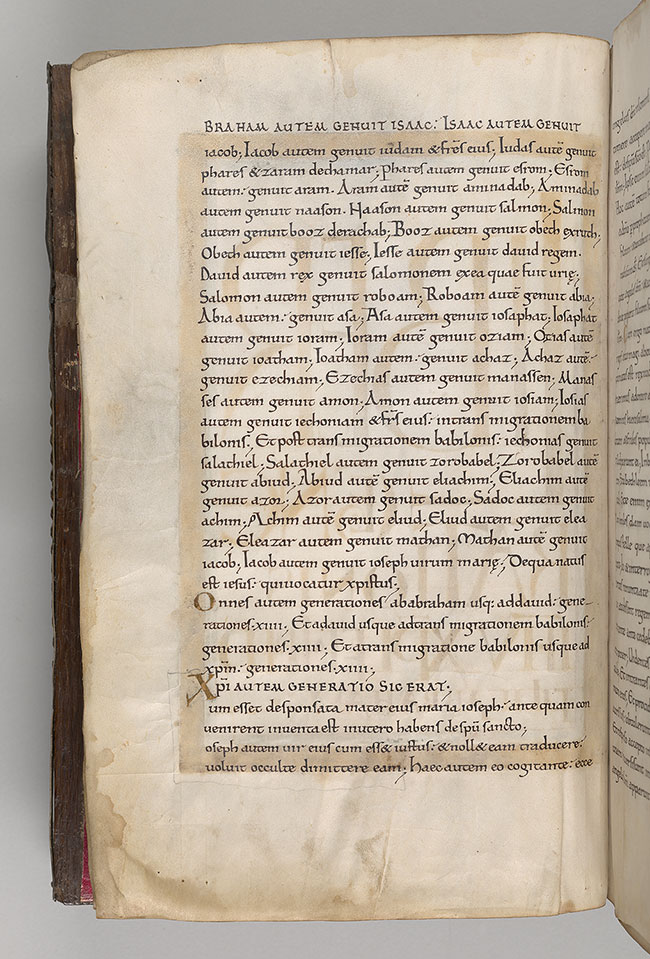 BRAHAM AUTEM GENUIT ISAAC; ISAAC AUTEM GENUIT
iacob; Iacob autem genuit iudam & frēs eius; Iudas autē genuit
phares & zaram dethamar; phares autem genuit esrom. Esrom
autem genuit aram. Aram autē genuit aminadab; Aminadab
autem genuit naason. Naason autem genuit salmon; Salmon
autem genuit booz derachab; Booz autem genuit obeth exruth;
Obeth autem genuit iesse; Iesse autem genuit david regem.
David autem rex genuit salomonem exea quae fuit urię;
Salomon autem genuit roboam; Roboam autē genuit abia;
Abia autem genuit asa; Asa autem genuit iosaphat; Iosaphat
autem genuit ioram; Ioram autē genuit oziam; Ozias autē
genuit ioatham; Ioatham autem genuit achaz; Achaz autē
genuit ezechiam; Ezechias autem genuit manassen; Manas
ses autem genuit amon; Amon autem genuit iosiam; Iosias
autem genuit iechoniam & frēs eius. intrans migrationem ba
bilonis; Et post trans migrationem babilonis. iechonias genuit
salathiel; Salathiel autem genuit zorobabel; Zorobabel autē
genuit abiud; Abiud autē genuit eliachim; Eliachim autē
genuit azor; Azor autem genuit sadoc; Sadoc autem genuit
achim; Achim autē genuit eliud; Eliud autem genuit elea
zar; Eleazar autem genuit mathan; Mathan autē genuit
iacob; Iacob autem genuit ioseph uirum marię; De qua natus
est iesus. qui uocatur xpistus;
Omnes autem generationes ab abraham usq; ad dauid. gene
rationes. xiiii; Et a dauid usque ad trans migrationem babilonis.
generationes. xiiii; Et a trans migratione babilonis usque ad
xpm̄. generationes. xiiii;
XPI AUTEM GENERATIO SIC ERAT.
um esset desponsata mater eius maria ioseph. ante quam con
uenirent inuenta est in utero habens de spū sancto;
oseph autem uir eius cum ess& iustus. & noll& eam traducere.
uoluit occulte dimittere eam; Haec autem eo cogitante. ecce